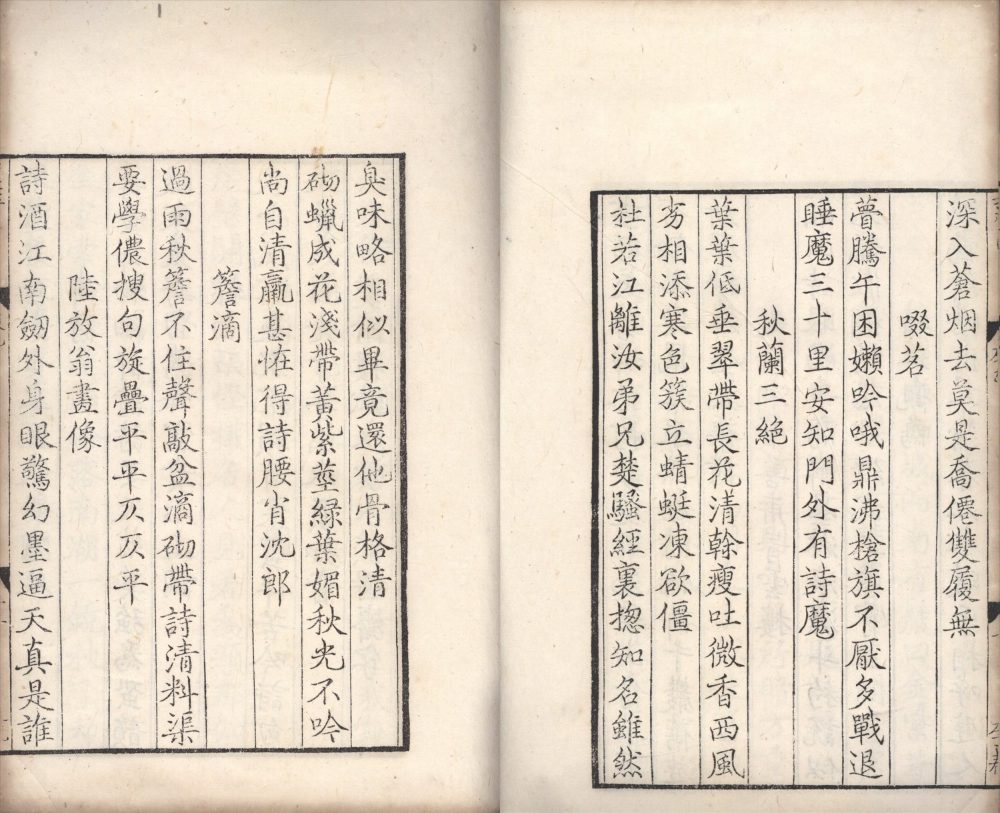 深入蒼烟去莫是喬僊雙履無
啜茗
瞢騰午困嬾吟哦鼎沸槍旗不厭多戰退
睡魔三十里安知門外有詩魔
秋蘭三絶
葉葉低垂翠帶長花淸幹瘦吐微香西風
劣相添寒色簇立蜻蜓凍欲僵
杜若江離汝弟兄楚騷經裏揔知名雖然
臭味略相似畢竟還他骨格清
砌蠟成花淺帶黃紫莖緑葉媚秋光不吟
尚自清羸甚恠得詩腰肖沈郎
簷滴
過雨秋簷不住聲敲盆滴砌帶詩清料渠
要學儂搜句旋疊平平仄仄平
陸放翁畫像
詩酒江南劒外身眼驚幻墨逼天真是誰